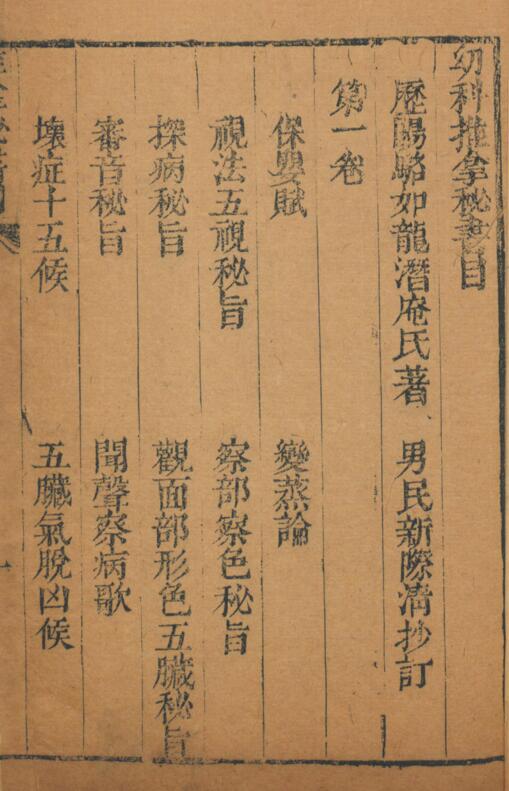 幼科推拿秘書目
歷陽駱如龍潛庵氏著 男民新際清抄訂
第一卷
保嬰賦 變蒸論
視法五視秘旨 察部察色秘旨
探病秘旨 觀面部形色五臟秘旨
審音秘旨 聞聲察病歌
壞症十五候 五臟氣脫凶候